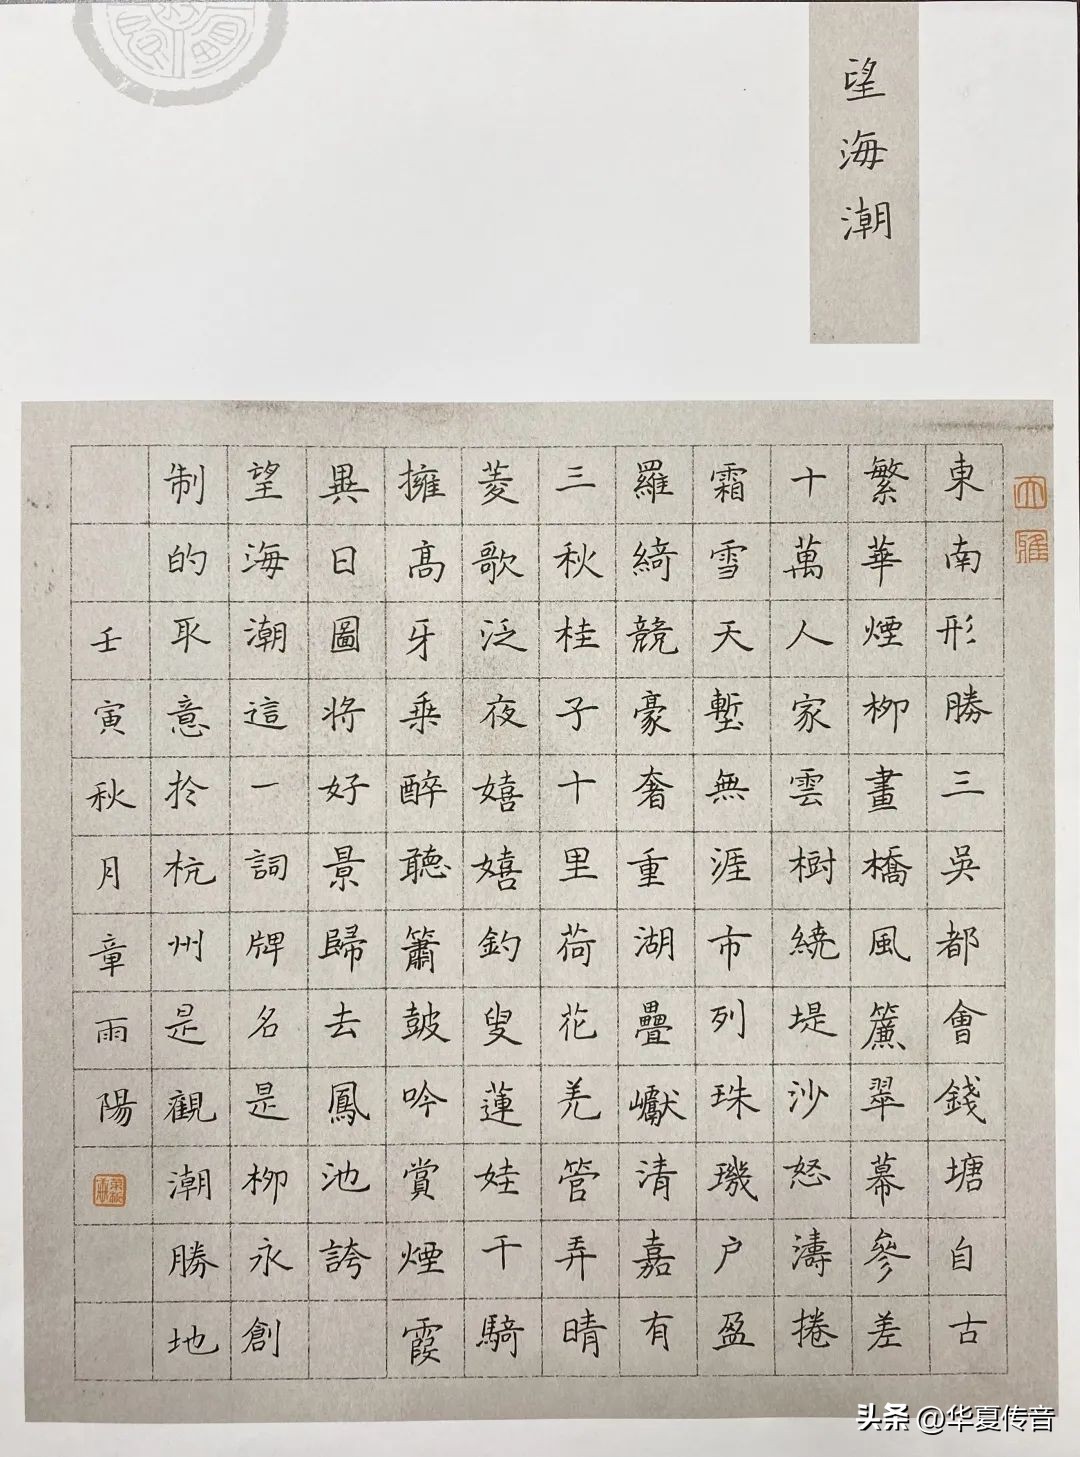 望海潮
大雅
東南形勝三吳都會錢塘自古
繁華煙柳畫橋風簾翠幕參差
十萬人家雲樹繞堤沙怒濤捲
霜雪天塹無涯市列珠璣户盈
羅綺競豪奢重湖疊巘清嘉有
三秋桂子十里荷花羌管弄晴
菱歌泛夜嬉嬉釣叟蓮娃千騎
擁高牙乘醉聽簫鼓吟賞煙霞
異日圖將好景歸去鳳池誇
望海潮這一詞牌名是柳永創
制的取意於杭州是觀潮勝地
壬寅秋月章雨陽
头条 @华夏传音